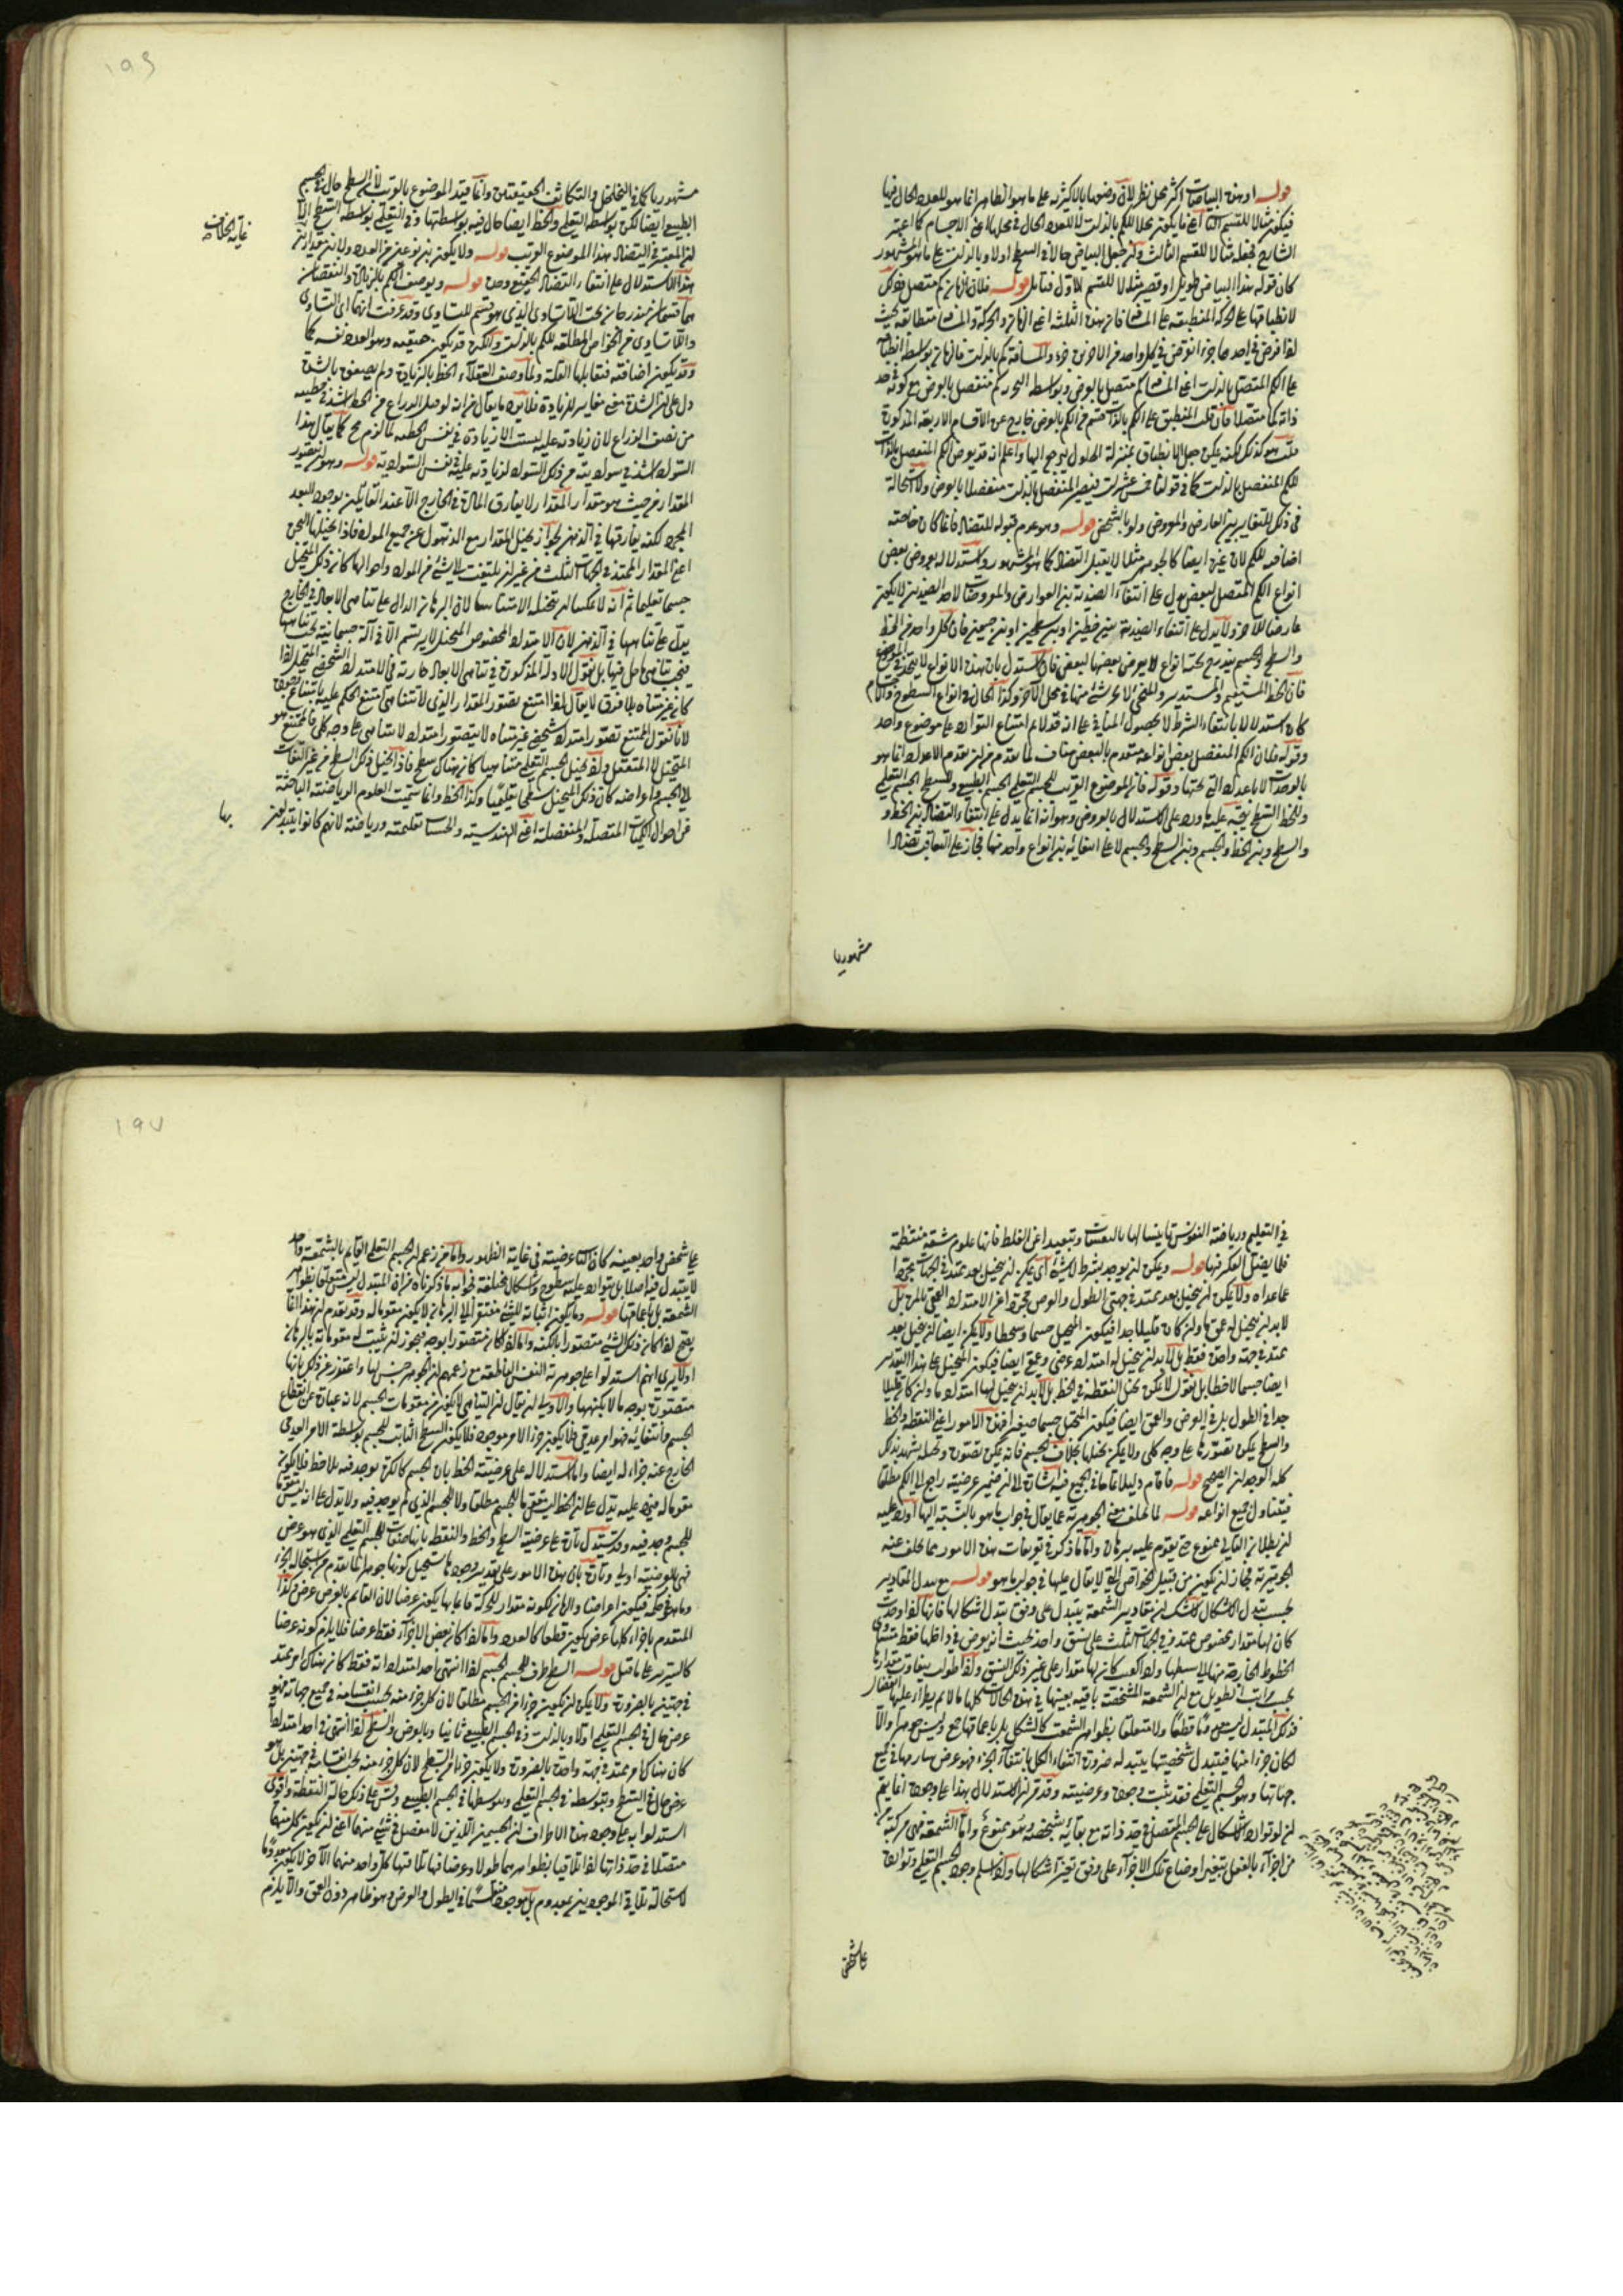 قوله او هذا البياض اكثر محل نظر لان وصفها بالاكثرية على ما هو الظاهر انما هو للعدد الحال فيها
فيكون مثالا للقسم الثاني اعني ما يكون محلا للكم بالذات لا للعدد الحال في محلها اعني الاجسام كما اعتبر
الشارح فجعله مثالا للقسم الثالث وان جعل البياض حالا في السطح اولا وبالذات على ما هو المشهور
كان قوله هذا البياض طويل او قصير مثالا للقسم الاول فتأمل قوله فلان الزمان كم متصل
لانطباقها على الحركة المنطبقة على المسافة فان هذه الثلثة اعني الزمان والحركة والمسافة متطابقة بحيث
اذا فرض في احدها جزء انفرض في كل واحد من الاخرين جزء والمسافة كم بالذات فالزمان بواسطة انطباقه
على الكم المتصل بالذات اعني المسافة كم متصل بالعرض وبواسطة التجزي كم منفصل بالعرض مع كونه في حد
ذاته كما متصلا فان قلت المنطبق على الكم بالذات قسم من الكم بالعرض خارج عن الاقسام الاربعة المذكورة
قلت هو كذلك لكنه يمكن جعل الانطباق بمنزلة الحلول فيرجع اليها واعلم انه قد يعرض الكم المنفصل بالذات
للكم المنفصل بالذات كما في قولنا خمس عشرات فيصير المنفصل بالذات منفصلا بالعرض ولا استحالة
في ذلك للتغاير بين العارض والمعروض ولو بالشخص قوله وهو عدم قبوله للتضاد فانما كان خاصة
اضافية للكم لان غيره ايضا كالجوهر مثلا لا يقبل التضاد كما هو المشهور واستدلاله بعروض بعض
انواع الكم المتصل لبعض يدل على انتفاء الضدية بين العوارض والمعروضات لان احد الضدين لا يكون
عارضا للاخر ولا يدل على انتفاء الضدية بين خطين او بين سطحين او بين جسمين فان كل واحد من الخط
والسطح والجسم يندرج تحته انواع لا يعرض بعضها لبعض فان استدل بان هذه الانواع لا يتحد في الموضوع
فان الخط المستقيم والمستدير والمنحني لا يحل شيء منها في محل الاخر وكذا الحال في انواع السطوح والاجسام
كان استدلالا بانتفاء الشرط لا بحصول المنافي على انه قد لا يلزم امتناع التوارد على موضوع واحد
وقوله ولان الكم المنفصل بعض انواعه متقوم بالبعض مناف لما تقدم من ان تقوم الاعداد انما هو
بالوحدات لا باعداد التي تحتها وقوله فان الموضوع القريب للجسم التعليمي الجسم الطبيعي وللسطح الجسم التعليمي
وللخط السطح يتجه عليه ما ورد على الاستدلال بالعروض وهو انه انما يدل على انتفاء التضاد بين الخط و
والسطح وبين الخط والجسم وبين السطح والجسم لا على انتفائه بين انواع واحد منها فجاز على التعاقب تضادا
مشهوريا
١٩٦
مشهوريا كما في التخلخل والتكاثف الحقيقيين وانما قيد الموضوع بالقريب لان السطح حال في الجسم
الطبيعي ايضا لكن بواسطة التعليمي والخط ايضا حال فيه بواسطتها وفي التعليمي بواسطة السطح الا
ان المعتبر في التضاد هذا الموضوع القريب قوله ولا يكون بين نوعين من العدد ولا بين مقدارين
غاية الخلاف
هذا الاستدلال على انتفاء التضاد الحقيقي وحده قوله ويوصف الكم بالزيادة والنقصان
هما قسمان مندرجان تحت اللاتساوي الذي هو قسيم للتساوي وقد عرفت انهما اي التساوي
واللاتساوي من الخواص المطلقة للكم بالذات والكثرة قد يكون حقيقية وهو العدد نفسه كما
وقد يكون اضافية فتقابلها القلة ولما وصف العقلاء الخط بالزيادة ولم يصفوه بالشدة
دل على ان الشدة معنى مغاير للزيادة فلا يرد ما يقال من انه لو قيل الذراع من الخط اشد في خطيته
من نصف الذراع لان زيادته عليه ليست الا زيادة في نفس الخطية لما لزم محال كما يقال هذا
السواد اشد في سواديته من ذلك السواد لزيادته عليه في نفس السوادية قوله وهو ان تصور
المقدار من حيث هو مقدار المقدار لا يفارق المادة في الخارج الا عند القائلين بوجود البعد
المجرد لكنه يفارقها في الذهن لجواز تخيل المقدار مع الذهول عن جميع المواد فاذا تخيلنا الثخن
اعني المقدار الممتد في الجهات الثلث من غير ان يلتفت الى شيء من المواد واحوالها كان ذلك المتخيل
جسما تعليميا ثم انه لا يمكننا ان نتخيله الا متناهيا لان البرهان الدال على تناهي الابعاد في الخارج
يدل على تناهيها في الذهن لان الامتداد المخصوص المتخيل لا يرتسم الا في آلة جسمانية يجب تناهيها
فيجب تناهي ما حل فيها بل نقول الادلة المذكورة في تناهي الابعاد جارية في الامتداد الشخصي المتخيل اذا
كان غير متناه بلا فرق لا يقال اذا امتنع تصور المقدار الذي لا يتناهى امتنع الحكم عليه بامتناع تصوره
لانا نقول الممتنع تصور امتداد شخصي غير متناه لا تصور امتداد لا يتناهى على وجه كلي فالممتنع هو
المتخيل لا المتعقل واذا تخيل الجسم التعليمي متناهيا كان هناك سطح فاذا تخيل ذلك السطح من غير التفات
الى الجسم واعراضه كان ذلك المتخيل سطحا تعليميا وكذا الخط وانما سميت العلوم الرياضية الباحثة
عن احوال الكميات المتصلة والمنفصلة اعني الهندسية والحساب تعليمية ورياضية لانهم كانوا يبتدؤن
بها
في التعليم ورياضة النفوس تأنيسا لها باليقينيات وتبعيدا عن الغلط فانها علوم متسقة منتظمة
فلا يضل الفكر فيها قوله ويمكن ان يوجد بشرط لا شيء اي يمكن ان نتخيل بعد ممتد في الجهات مجردا
عما عداه ولا يمكن ان نتخيل بعد ممتد في جهتي الطول والعرض مجردا عن الامتداد العمقي بالمرة بل
لا بد ان نتخيل له عمق ما وان كان قليلا جدا فيكون المتخيل جسما لا سطحا ولا يمكن ايضا ان نتخيل بعد
ممتد في جهة واحدة فقط بل لا بد ان نتخيل له امتداد عرضي وعمقي ايضا فيكون المتخيل على هذا التقدير
ايضا جسما لا خطا بل نقول لا يمكن تخيل النقطة في الخط بل لا بد ان نتخيل لها امتداد ما وان كان قليلا
جدا في الطول بل في العرض والعمق ايضا فيكون المتخيل جسما صغيرا فهذه الامور اعني النقطة والخط
والسطح يمكن تصورها على وجه كلي ولا يمكن تخيلها بخلاف الجسم فانه يمكن تصوره وتخيله يشهد بذلك
كله الوجدان الصحيح قوله فاقام دليلا عاما في الجميع فيه اشارة الى ان ضمير عرضيته راجع الى الكم مطلقا
فيتناول جميع انواعه قوله لما تخلف معنى الجوهرية عما يقال في جواب ما هو بالنسبة اليها اورد عليه
ان بطلان التالي ممنوع حتى يقوم عليه برهان واما ما ذكروه في تعريفات هذه الامور مما تخلف عنه
الجوهرية فجاز ان يكون من قبيل الخواص التي لا يقال عليها في جواب ما هو قوله مع تبدل المقادير
بحسب تبدل الاشكال لا شك ان مقادير الشمعة يتبدل على وفق تبدل اشكالها فانها اذا دورت
كان لها مقدار مخصوص ممتد في الجهات الثلث على نسق واحد بحيث انه يفرض في داخلها نقطة يتساوى
الخطوط الخارجة منها الى سطحها واذا كعبت كان لها مقدار على غير ذلك النسق واذا طولت يتفاوت مقدارها
بحسب مراتب التطويل مع ان الشمعة المشخصة باقية بعينها في هذه الحالات كلها ما لم يطرأ عليها انفصال
فذلك المتبدل ليس عدميا قطعا ولا متعلقا بظواهر الشمعة كالشكل بل باعماقها جميعا وليس جوهرا والا
لكان جزءا منها فيتبدل شخصيتها بتبدله ضرورة انتفاء الكل بانتفاء الجزء فهو عرض سار بها في جميع
جهاتها وهو الجسم التعليمي فقد يثبت وجوده وعرضيته وقد مر ان الاستدلال بهذا على وجوده انما يتم
ان لو توارد الاشكال على الجسم المتصل في حد ذاته مع بقائه بشخصه وهو ممنوع واما الشمعة فهي مركبة
من اجزاء بالفعل يتغير اوضاع تلك الاجزاء على وفق تغير اشكالها واذا سلم وجود الجسم التعليمي وتوارده
على شخص
١٩٧
على شخص واحد بعينه كان اثبات عرضيته في غاية الظهور واما من زعم ان الجسم التعليمي القائم بالشمعة واحد
لا يتبدل فيه اصلا بل يتوارد عليه سطوح واشكال مختلفة فجوابه ما ذكرناه من ان المتبدل ليس متعلقا بظواهر
الشمعة بل باعماقها قوله وما يكون اثباته للشيء مفتقرا الى البرهان لا يكون مقوما له وقد تقدم ان هذا انما
يصح اذا كان ذلك الشيء متصورا بالكنه واما اذا كان متصورا بوجه ما فيجوز ان يثبت له مقوماته بالبرهان
اولا يرى انهم استدلوا على جوهرية النفس الناطقة مع زعمهم ان الجوهر جنس لها واعتذروا عن ذلك بانها
متصورة بوجه ما لا بكنهها والاولى ان يقال ان التناهي لا يكون من مقومات الجسم لانه عبارة عن انقطاع
الجسم وانتفائه فهو امر عدمي فلا يكون جزءا لامر موجود فلا يكون السطح الثابت للجسم بواسطة الامر العدمي
الخارج عنه جزءا له ايضا واما استدلاله على عرضية الخط بان الجسم كالكرة يوجد فيه بلا خط فلا يكون
مقوما له فيرد عليه انه يدل على ان الخط ليس مقوما للجسم مطلقا ولا للجسم الذي لم يوجد فيه ولا يدل على انه ليس مقوما
للجسم وجد فيه وقد يستدل تارة على عرضية السطح والخط والنقطة بانها صفات للجسم التعليمي الذي هو عرض
فهي بالعرضية اولى وتارة بان هذه الامور على تقدير وجودها يستحيل كونها جوهرا لما تقدم من استحالة الجزء
وما هو في حكمه فيكون اعراضا والزمان لكونه مقدارا للحركة قائما بها يكون عرضا لان القائم بالعرض عرض وكذا
المتقوم باجزاء كلها عرض يكون قطعا كالعدد واما اذا كان بعض الاجزاء فقط عرضا فلا يلزم كونه عرضا
كالسرير على ما قيل قوله السطح طرف للجسم الجسم اذا انتهى احد امتداداته فقط كان هناك امر ممتد
في جهتين بالضرورة ولا يمكن ان يكون جزءا من الجسم مطلقا لان كل جزء منه يجب انقسامه في جميع جهاته فهو
عرض حال في الجسم التعليمي اولا وبالذات وفي الجسم الطبيعي ثانيا وبالعرض والسطح اذا انتهى في احد امتداديه
كان هناك امر ممتد في جهة واحدة بالضرورة ولا يكون جزءا من السطح لان كل جزء منه يجب انقسامه في جهتين بل هو
عرض حال في السطح وبتوسطه في الجسم التعليمي وبتوسطها في الجسم الطبيعي وقس على ذلك حال النقطة واقوى
استدلوا به على وجود هذه الاطراف ان الجسمين اللذين لا مفصل في شيء منهما اعني ان يكون كل منهما
متصلا في حد ذاتها اذا تلاقيا بظواهرهما طولا وعرضا فما تلاقى به كل واحد منهما الآخر لا يكون معدوما
لاستحالة تلاقي الموجودين بمعدوم بل موجودا منقسما في الطول والعرض وهو ظاهر دون العمق والا يلزم